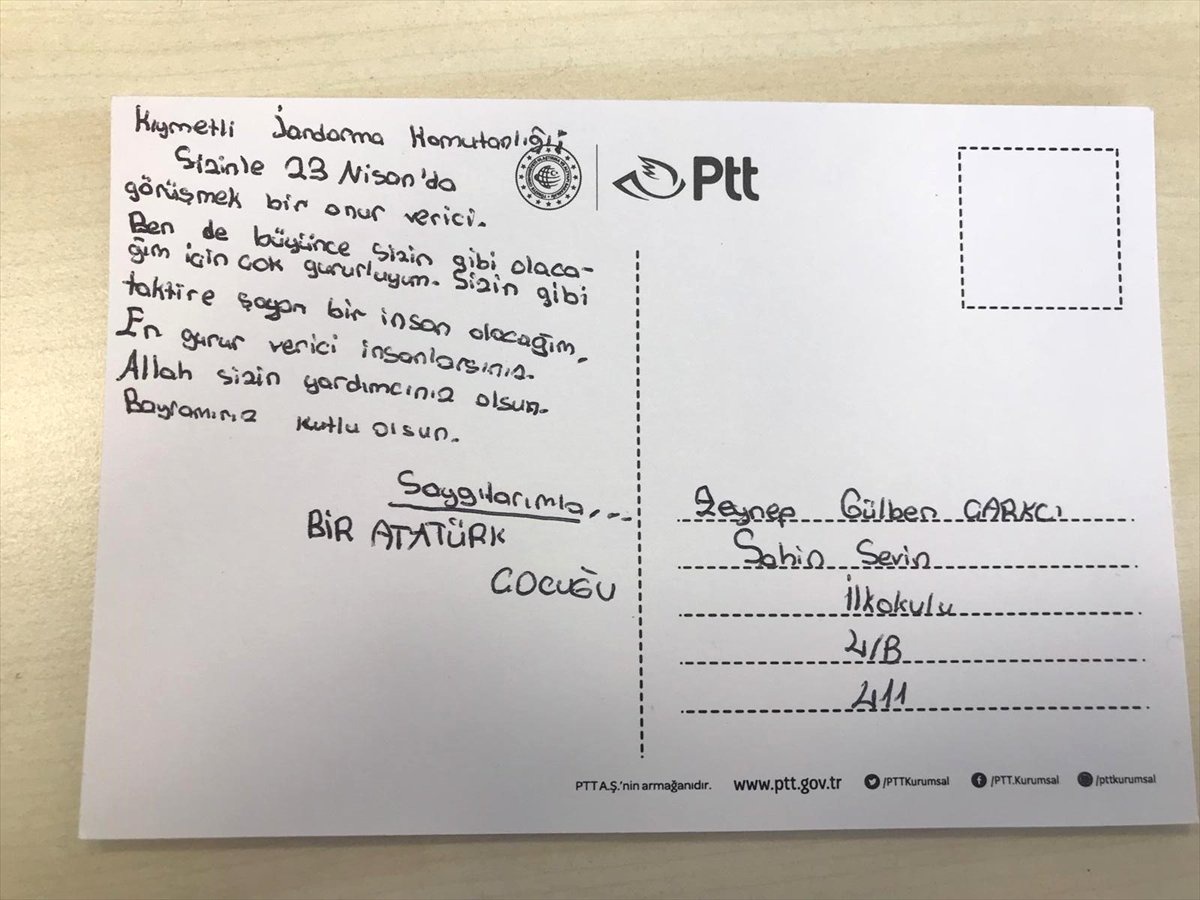 Kıymetli Jandarma Komutanlığı
Sizinle 23 Nisan'da
görüşmek bir onur verici.
Ben de büyünce sizin gibi olaca-
ğım için çok gururluyum. Sizin gibi
taktire şayan bir insan olacağım,
En gurur verici insanlarsınız.
Allah sizin yardımcınız olsun.
Bayramınız kutlu olsun.
Saygılarımla,...
BİR ATATÜRK
ÇOCUĞU
Ptt
Zeynep Gülben ÇARKCI
Şahin Sevin
İlkokulu
4/B
411
PTT A.Ş.'nin armağanıdır. www.ptt.gov.tr /PTTKurumsal /PTT.Kurumsal /pttkurumsal